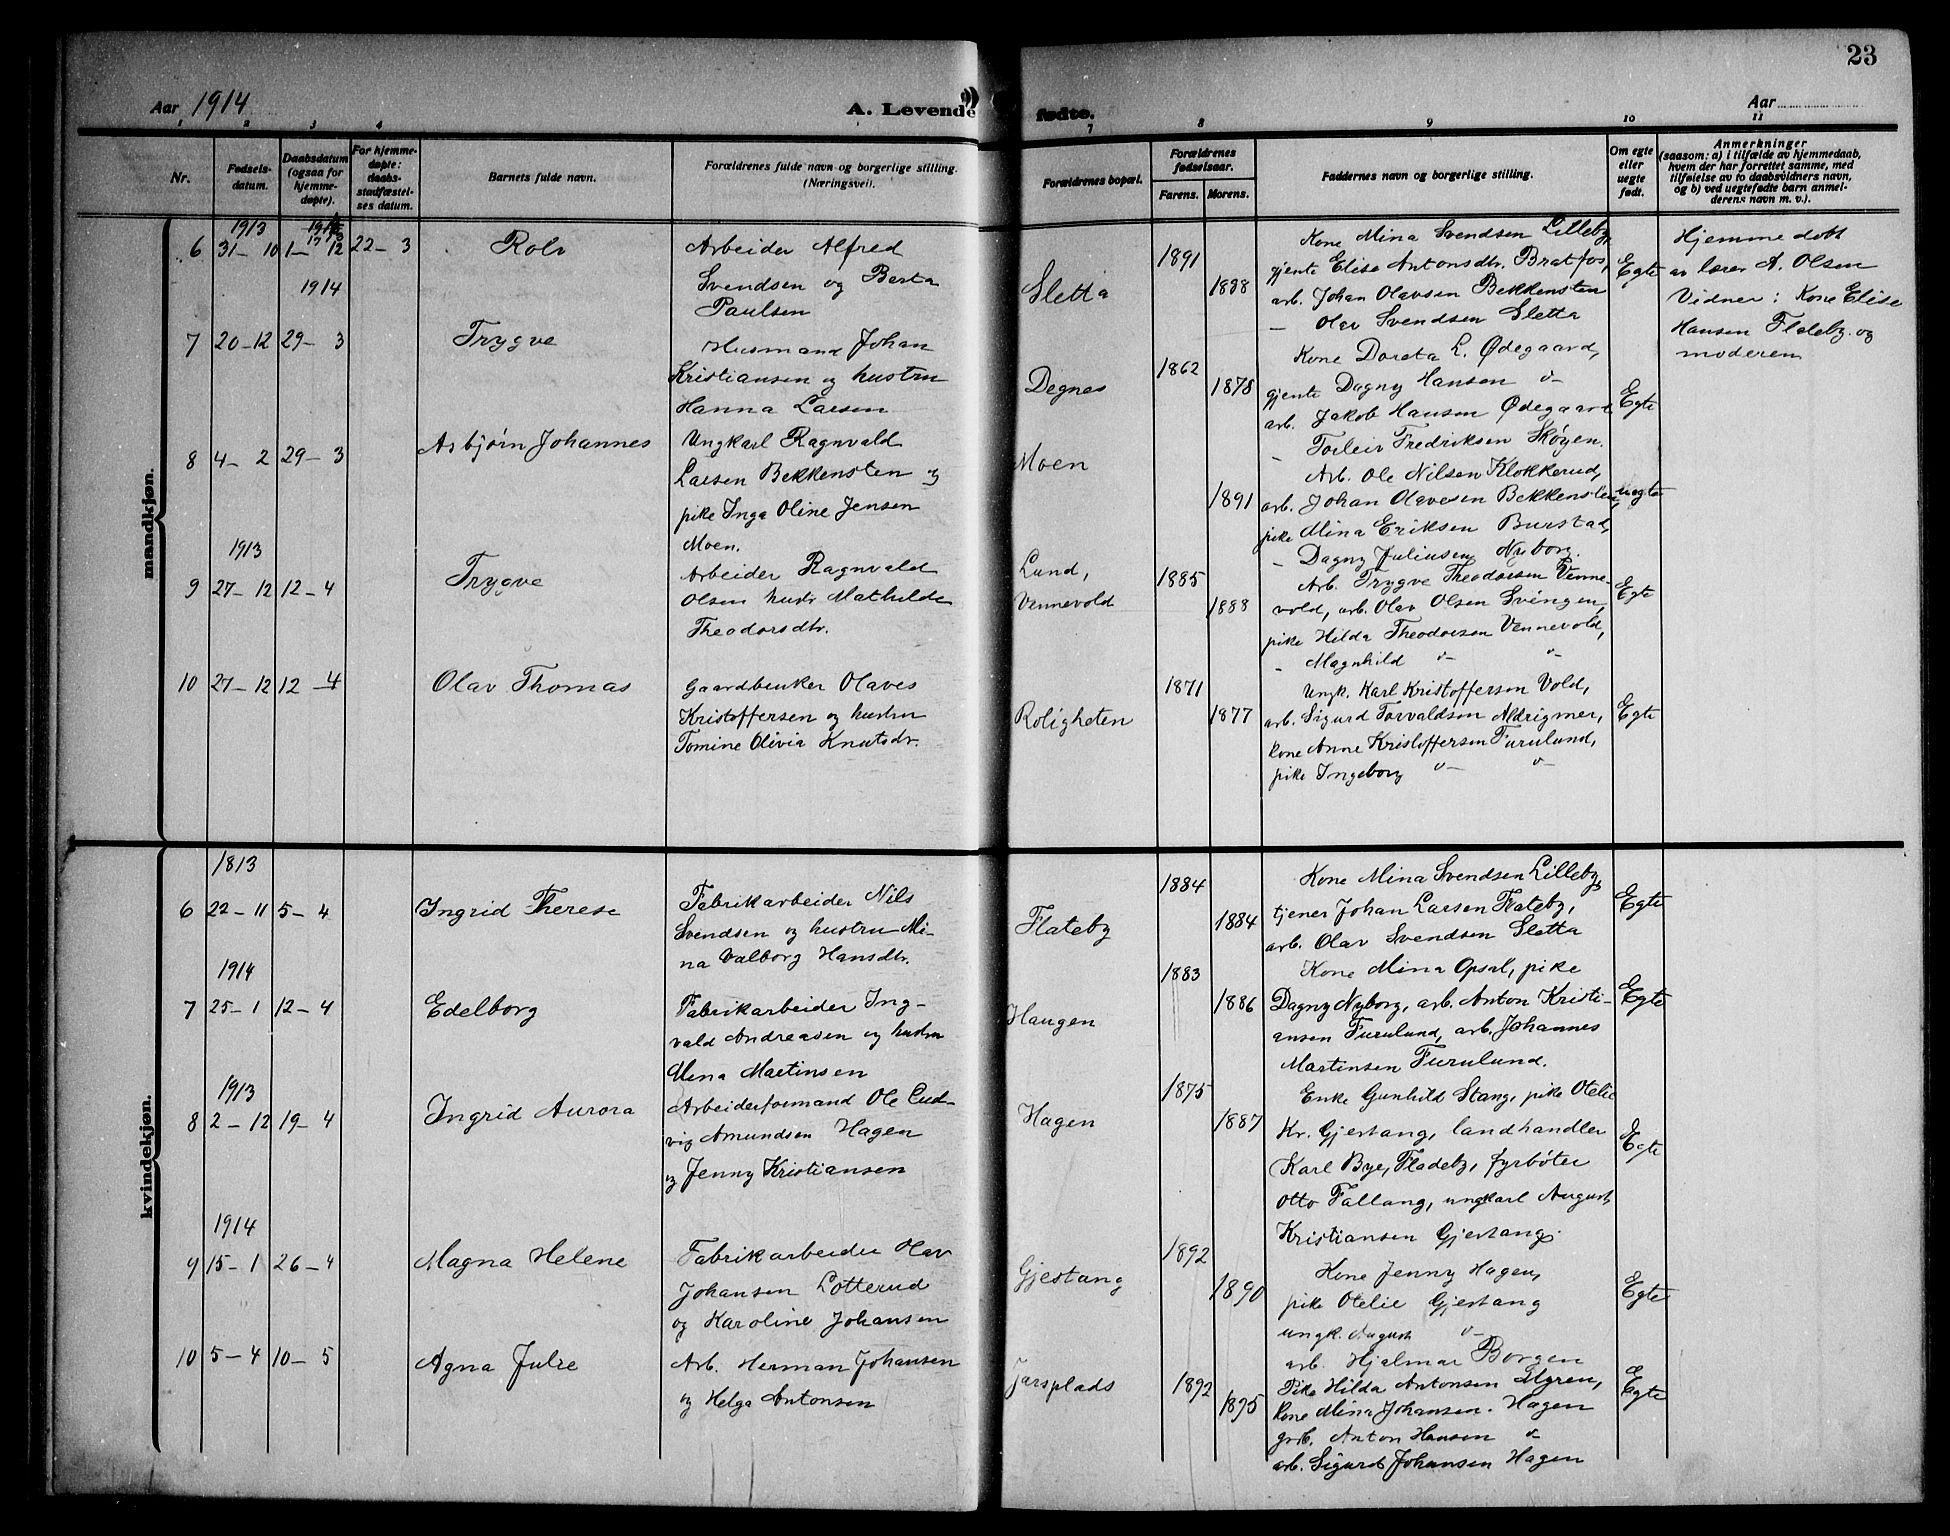 23
Aar 1914
A. Levende fødte.
Aar
1 2 3 4 7 8 9 10 11
Nr.
Fødsels-
datum.
Daabsdatum
(ogsaa for
hjemme-
døpte).
For hjemme-
døpte:
daabs-
stadfæstel-
ses datum.
Barnets fulde navn.
Forældrenes fulde navn og borgerlige stilling.
(Næringsvei).
Forældrenes bopæl.
Forældrenes
fødselsaar.
Farens. Morens.
Faddernes navn og borgerlige stilling.
Om egte
eller
uegte
født.
Anmerkninger
(saasom: a) i tilfælde av hjemmedaab,
hvem der har forrettet samme, med
tilføielse av to daabsvidners navn,
og b) ved uegtefødte barn anmel-
derens navn m. v.).
mandkjøn.
1913
6 31–10 1–12 22–3 Rolv
Arbeider Alfred
Svendsen og Berta
Paulsen
Sletta
1891
1888
Kone Mina Svendsen Lilleby,
gjente Elise Antonsdtr. Bratfos,
arb. Johan Olavsen Bekkensten
– Olav Svendsen Sletta
Egte
Hjemmedøbt
av lærer A. Olsen
Vidner: Kone Elise
Hansen Flateby og
moderen
1914
7 20–12 29–3 Trygve
Husmand Johan
Kristiansen og hustru
Hanna Larsen
Degnes
1862
1878
Kone Doreta L. Ødegaard,
gjente Dagny Hansen d–
arb. Jakob Hansen Ødegaard
– Torleiv Fredriksen Skøyen.
Egte
8 4–2 29–3 Asbjørn Johannes
Ungkarl Ragnvald
Larsen Bekkensten og
pike Inga Oline Jensen
Moen.
Moen
1891
Arb. Ole Nilsen Klokkerud,
arb. Johan Olavesen Bekkensten,
pike Mina Eriksen Burstad,
– Dagny Juliusen Nyborg.
uegte
1913
9 27–12 12–4 Trygve
Arbeider Ragnvald
Olsen hustr. Mathilde
Theodorsdtr.
Lund,
Vennevold
1885
1888
Arb. Trygve Theodorsen Venne-
vold, arb. Olav Olsen Svingen,
pike Hilda Theodorsen Vennevold,
– Magnhild d– d–
Egte
10 27–12 12–4 Olav Thomas
Gaardbruker Olaves
Kristoffersen og hustru
Tomine Olivia Knutsdr.
Roligheten
1871
1877
Ungk. Karl Kristoffersen Vold,
arb. Sigurd Torvaldsen Aldrigmer,
kone Anne Kristoffersen Furulund,
pike Ingeborg d– d–
Egte
kvindekjøn.
1813
6 22–11 5–4 Ingrid Therese
Fabrikarbeider Nils
Svendsen og hustru Mi-
na Valborg Hansdtr.
Flateby
1884
1884
Kone Mina Svendsen Lilleby,
tjener Johan Larsen Flateby,
arb. Olav Svendsen Sletta
Egte
1914
7 25–1 12–4 Edelborg
Fabrikarbeider Ing-
vald Andreasen og hustru
Mina Martinsen
Haugen
1883
1886
Kone Mina Opsal, pike
Dagny Nyborg, arb. Anton Kristi-
ansen Furulund, arb. Johannes
Martinsen Furulund.
Egte
1913
8 2–12 19–4 Ingrid Aurora
Arbeiderformand Ole Lud-
vig Amundsen Hagen
og Jenny Kristiansen
Hagen
1875
1887
Enke Gunhild Stang, pike Otelie
Kr. Gjestang, landhandler
Karl Bye, Fladeby, fyrbøter
Otto Fallang, ungkarl August
Kristiansen Gjestang.
Egte
1914
9 15–1 26–4 Magna Helene
Fabrikarbeider Olav
Johansen Lotterud
og Karoline Johansen
Gjestang
1892
1890
Kone Jenny Hagen,
pike Otelie Gjestang
ungk. August d–
arb. Hjalmar Borgen
Egte
10 5–4 10–5 Agna Julie
Arb. Herman Johansen
og Helga Antonsen
Jarsplads
1892
1895
Pike Hilda Antonsen Myren,
kone Mina Johansen Hagen
grb. Anton Hansen d–
arb. Sigurd Johansen Hagen
Egte